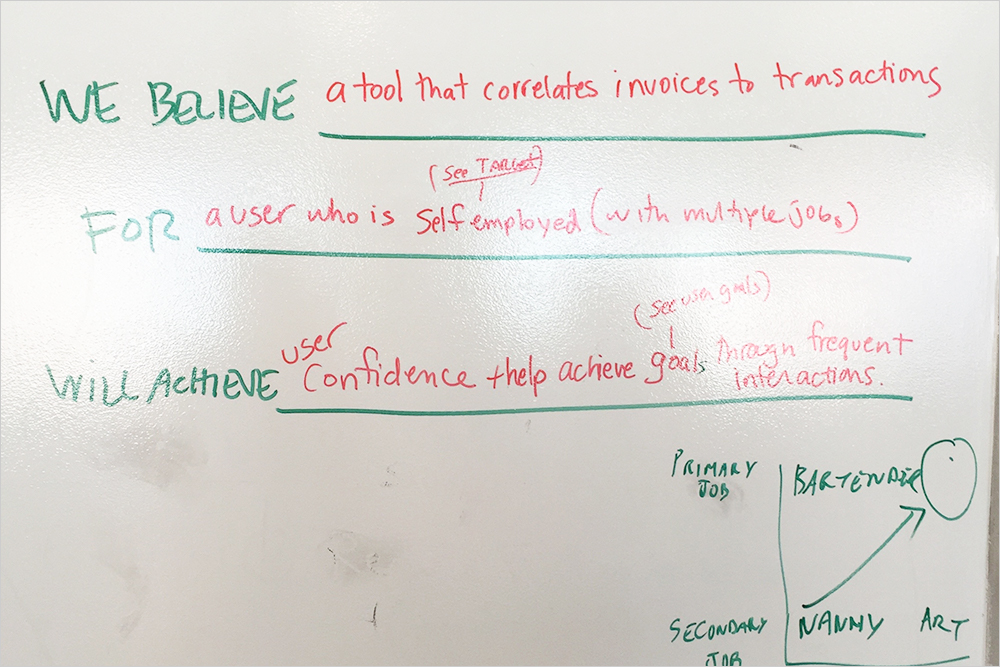 WE BELIEVE a tool that correlates invoices to transactions
(see TARGET)
FOR a user who is self employed (with multiple jobs)
(see user goals)
user
WILL ACHIEVE Confidence + help achieve goals through frequent
interactions.
PRIMARY JOB
BARTENDER
SECONDARY JOB
NANNY ART